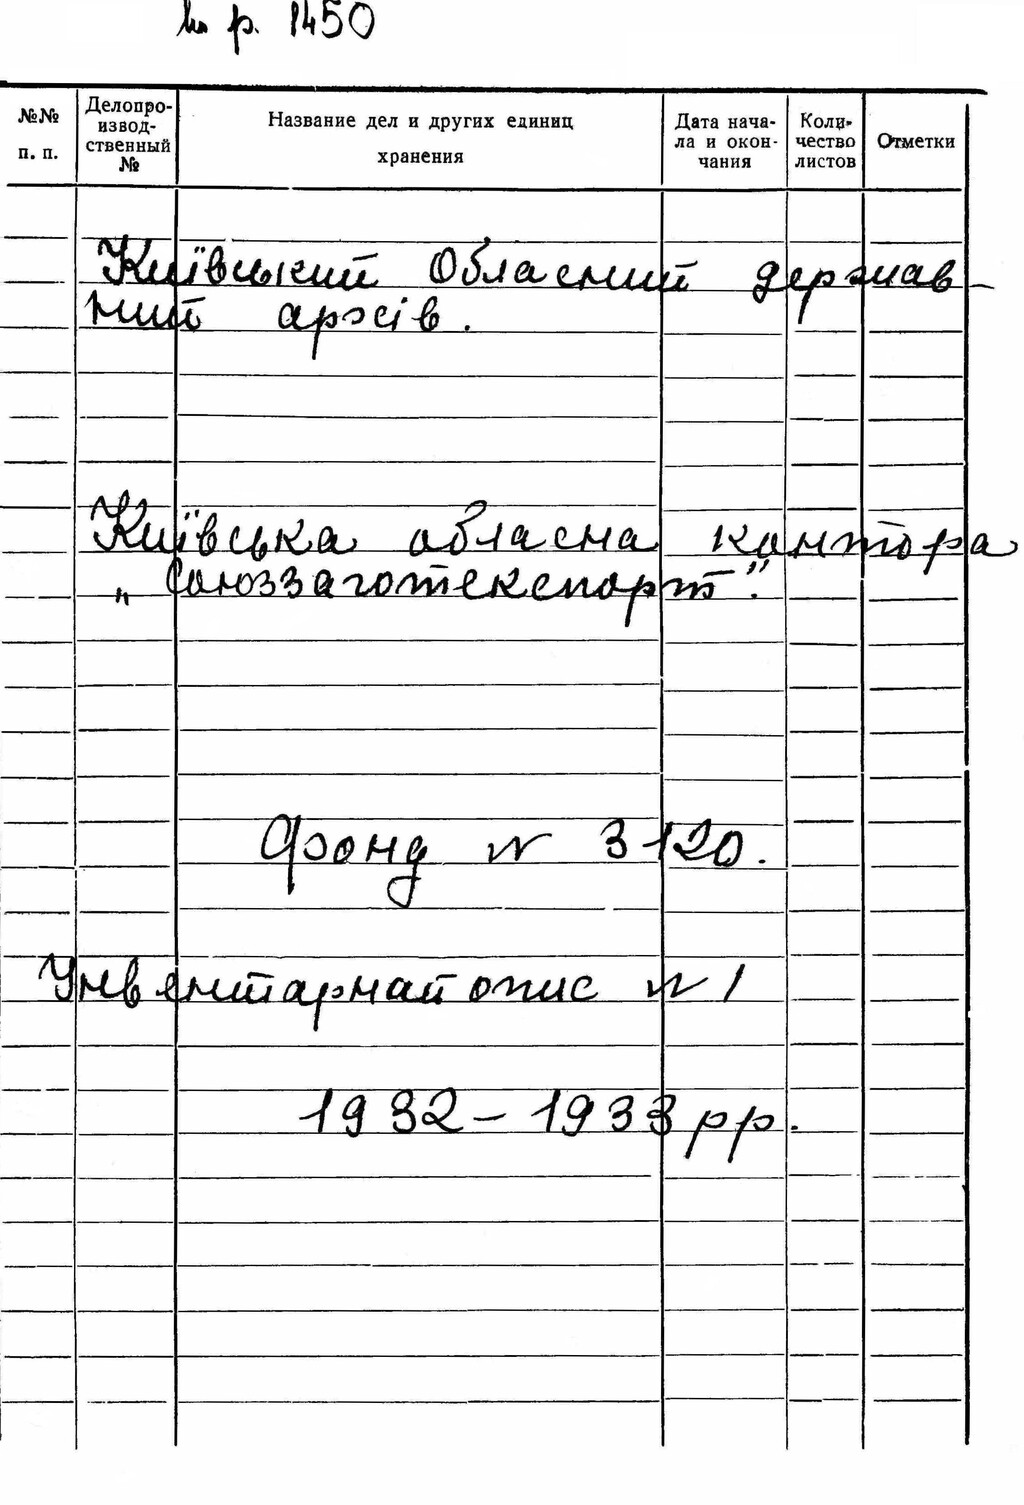 р. 1450
№№ п. п.
Делопро-
извод-
ственный
№
Название дел и других единиц
хранения
Дата нача-
ла и окон-
чания
Коли-
чество
листов
Отметки
Київський Обласний держав-
ний архів.
Київська обласна контора
„Союззаготекспорт".
Фонд № 3120.
опис № 1
1932 – 1933 рр.